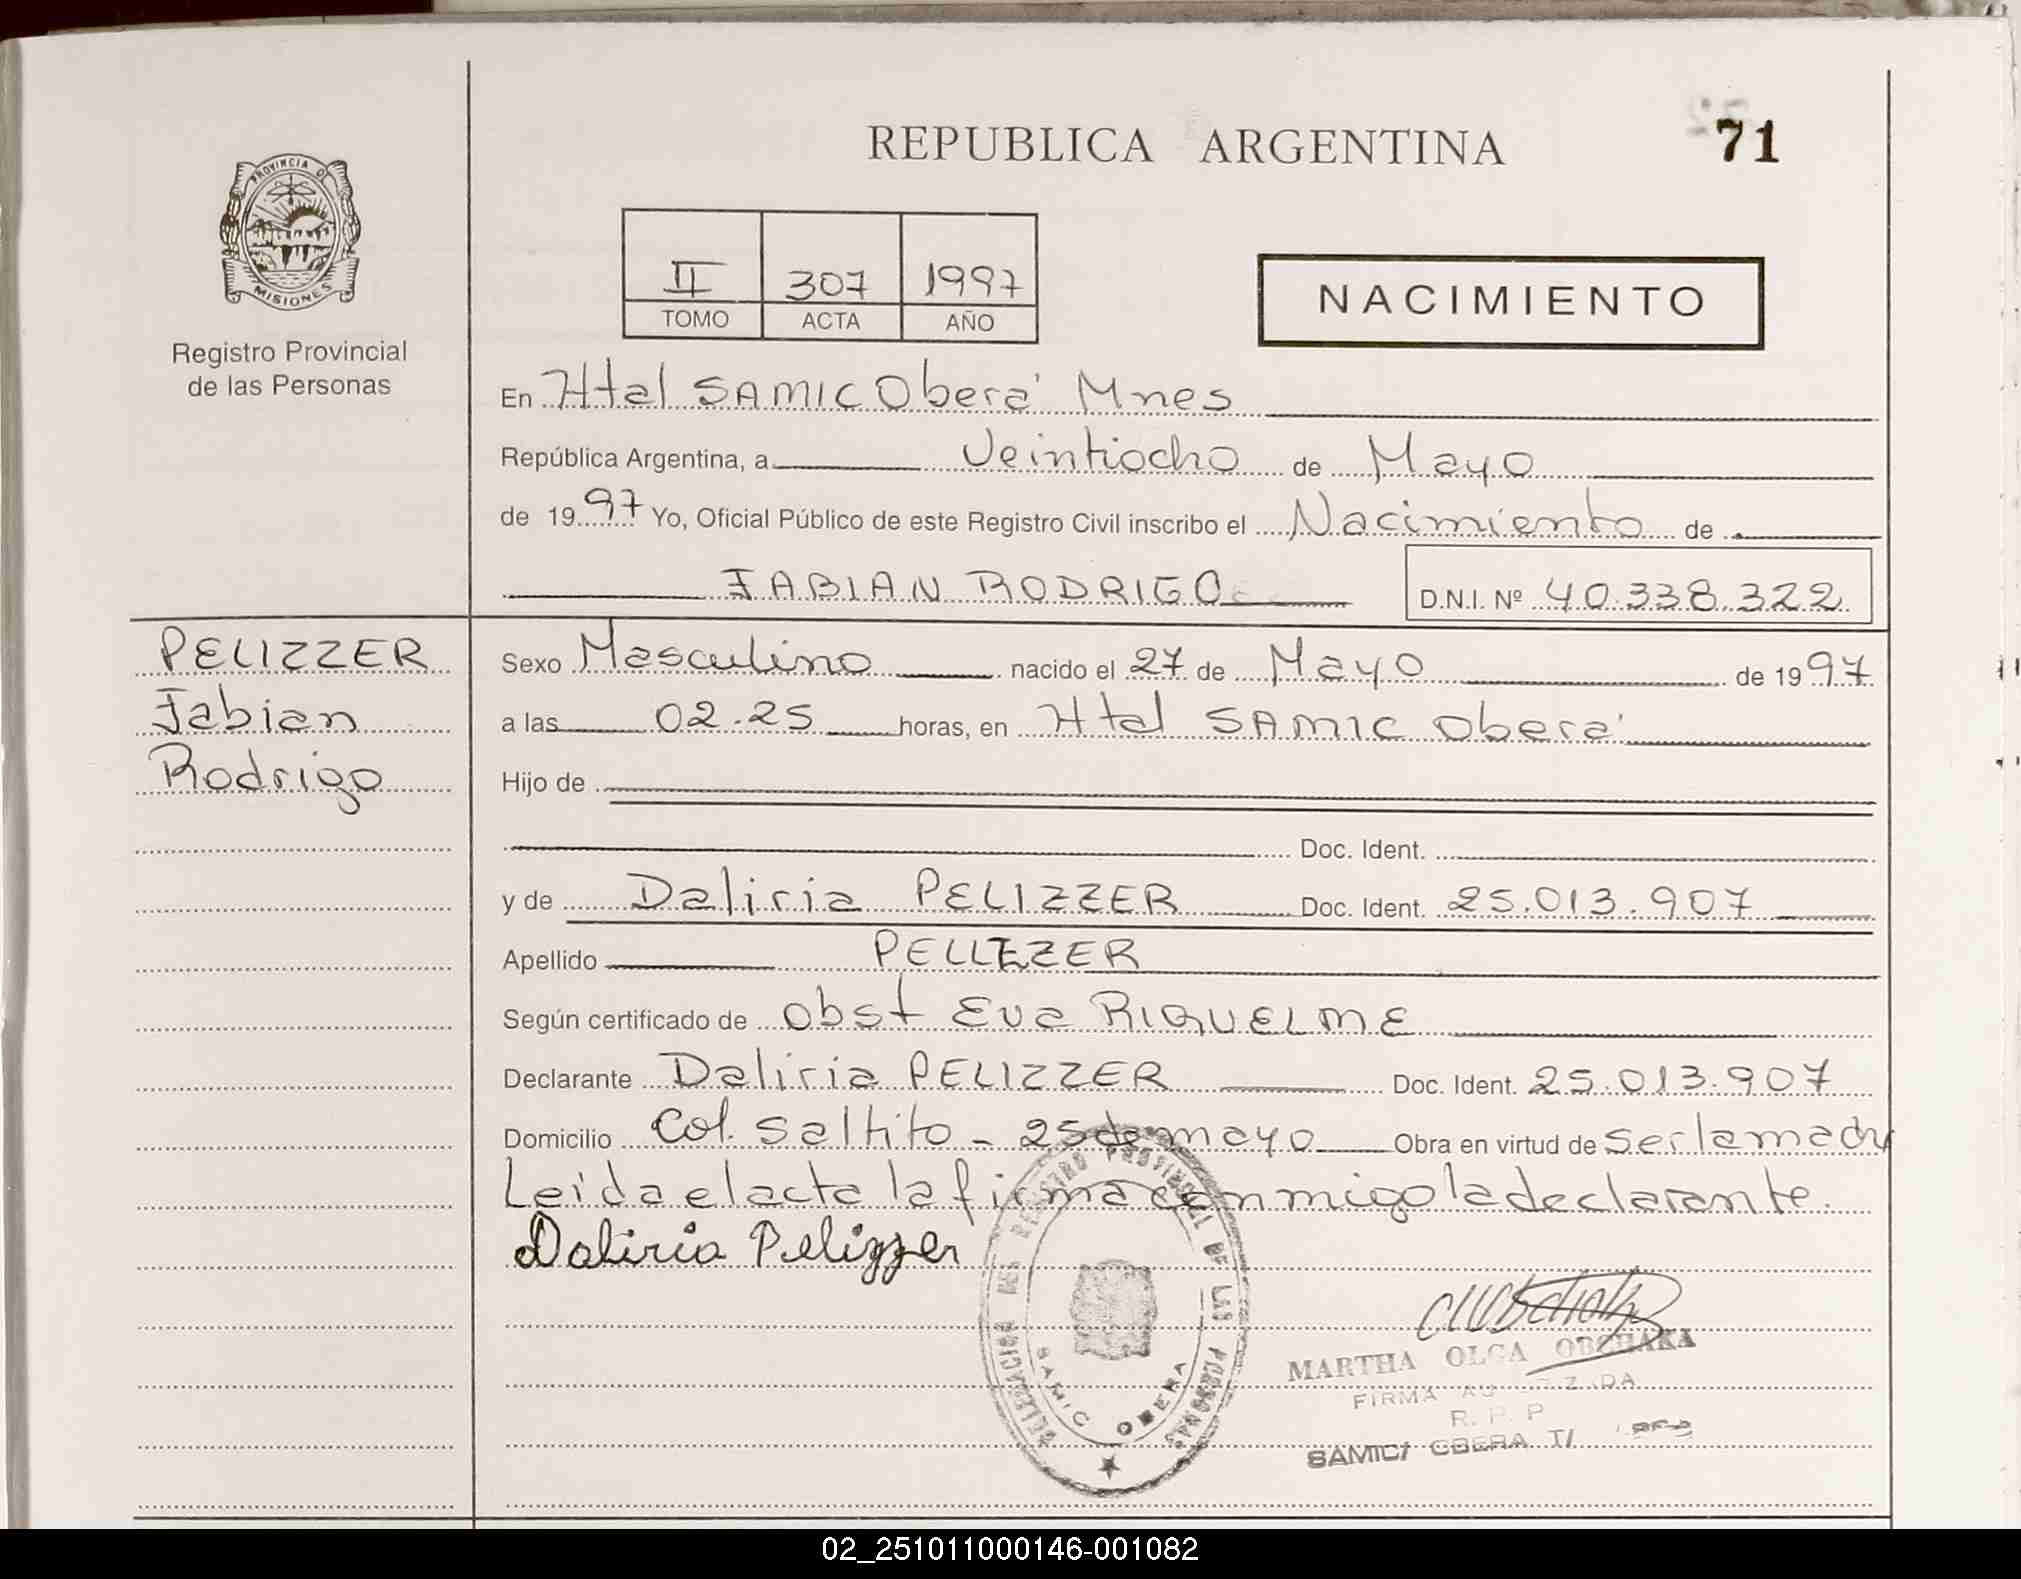 REPUBLICA ARGENTINA
71
PROVINCIA D
MISIONES
Registro Provincial
de las Personas
II 307 1997
TOMO ACTA AÑO
NACIMIENTO
En Htal SAMIC Oberá Mnes
República Argentina, a Veintiocho de Mayo
de 1997 Yo, Oficial Público de este Registro Civil inscribo el Nacimiento de
FABIAN RODRIGO
D.N.I. Nº 40.338.322
PELIZZER
Fabian
Rodrigo
Sexo Masculino nacido el 27 de Mayo de 1997
a las 02.25 horas, en Htal SAMIC Oberá
Hijo de
Doc. Ident.
y de Daliria PELIZZER Doc. Ident. 25.013.907
Apellido PELLEZER
Según certificado de Obst Eva RIQUELME
Declarante Daliria PELIZZER Doc. Ident. 25.013.907
Domicilio Col. Saltito - 25 de mayo Obra en virtud de ser la madre
Leída el acta la firma conmigo la declarante.
Daliria Pelizzer
DELEGACION DEL REGISTRO PROVINCIAL DE LAS PERSONAS
SAMIC OBERA
MARTHA OLGA OBCHAKA
FIRMA AUTORIZADA
R. P. P
SAMIC/ OBERA
02_251011000146-001082